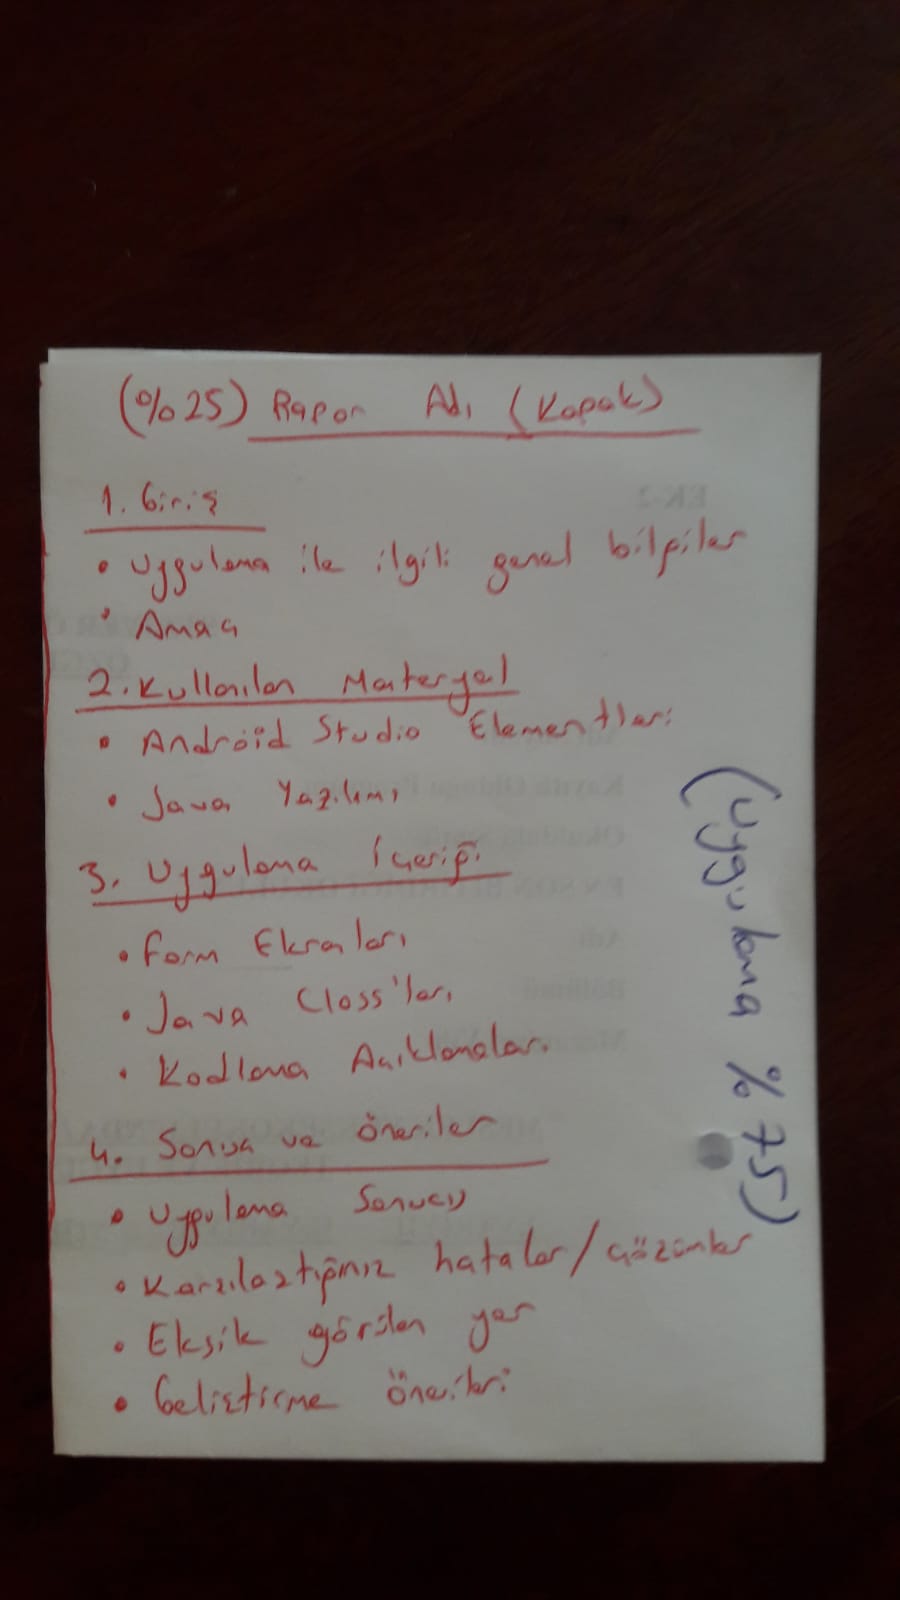 (%25) Rapor Adı (Kapak)
1. Giriş
• Uygulama ile ilgili genel bilgiler
• Amaç
2. Kullanılan Materyal
• Android Studio Elementleri
• Java Yazılımı
3. Uygulama İçeriği
• Form Ekranları
• Java Class'ları
• Kodlama Açıklamaları
4. Sonuç ve öneriler
• Uygulama Sonucu
• Karşılaştığınız hatalar/çözümler
• Eksik görülen yer
• Geliştirme önerileri
(Uygulama %75)
EK-2